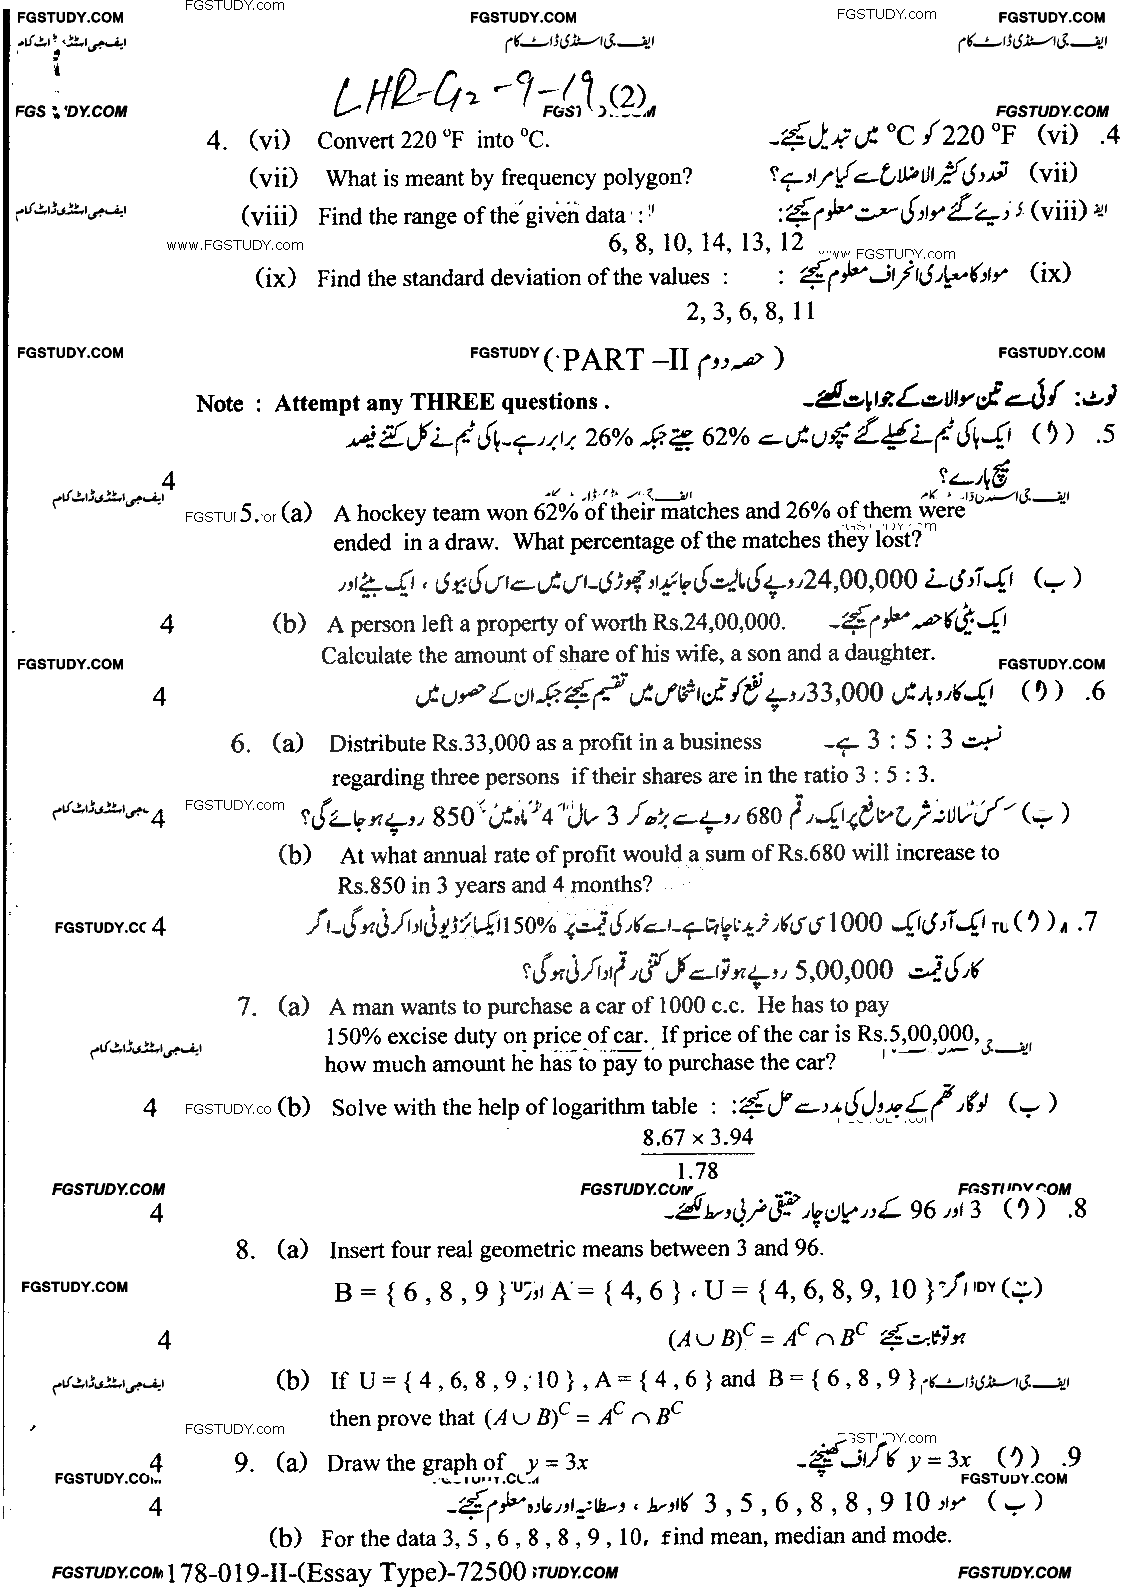 FGSTUDY.COM FGSTUDY.com FGSTUDY.COM FGSTUDY.com FGSTUDY.COM
ایف جی اسٹڈی ڈاٹ کام ایف جی اسٹڈی ڈاٹ کام ایف جی اسٹڈی ڈاٹ کام
LHR-G2-9-19 (2)
FGSTUDY.COM
4. (vi) Convert 220 °F into °C. 4. (vi) 220 °F کو °C میں تبدیل کیجئے۔
(vii) What is meant by frequency polygon? (vii) تعددی کثیر الاضلاع سے کیا مراد ہے؟
ایف جی اسٹڈی ڈاٹ کام (viii) Find the range of the given data : (viii) دیئے گئے مواد کی سعت معلوم کیجئے:
www.FGSTUDY.com 6, 8, 10, 14, 13, 12 www.FGSTUDY.com
(ix) Find the standard deviation of the values : (ix) مواد کا معیاری انحراف معلوم کیجئے :
2, 3, 6, 8, 11
FGSTUDY.COM FGSTUDY (PART –II حصہ دوم) FGSTUDY.COM
Note : Attempt any THREE questions . نوٹ: کوئی سے تین سوالات کے جوابات لکھئے۔
5. (ا) ایک ہاکی ٹیم نے کھیلے گئے میچوں میں سے 62% جیتے جبکہ 26% برابر رہے۔ ہاکی ٹیم نے کل کتنے فیصد
4 میچ ہارے؟
ایف جی اسٹڈی ڈاٹ کام
5. (a) A hockey team won 62% of their matches and 26% of them were
ended in a draw. What percentage of the matches they lost?
(ب) ایک آدمی نے 24,00,000 روپے کی مالیت کی جائیداد چھوڑی۔ اس میں سے اس کی بیوی ، ایک بیٹے اور
4 (b) A person left a property of worth Rs.24,00,000. ایک بیٹی کا حصہ معلوم کیجئے۔
Calculate the amount of share of his wife, a son and a daughter.
FGSTUDY.COM FGSTUDY.COM
4 6. (ا) ایک کاروبار میں 33,000 روپے نفع کو تین اشخاص میں تقسیم کیجئے جبکہ ان کے حصوں میں
6. (a) Distribute Rs.33,000 as a profit in a business نسبت 3 : 5 : 3 ہے۔
regarding three persons if their shares are in the ratio 3 : 5 : 3.
ایف جی اسٹڈی ڈاٹ کام 4 FGSTUDY.com (ب) کس سالانہ شرح منافع پر ایک رقم 680 روپے سے بڑھ کر 3 سال 4 ماہ میں 850 روپے ہو جائے گی؟
(b) At what annual rate of profit would a sum of Rs.680 will increase to
Rs.850 in 3 years and 4 months?
4 7. (ا) ایک آدمی ایک 1000 سی سی کار خریدنا چاہتا ہے۔ اسے کار کی قیمت پر 150% ایکسائز ڈیوٹی ادا کرنی ہوگی۔ اگر
کار کی قیمت 5,00,000 روپے ہو تو اسے کل کتنی رقم ادا کرنی ہوگی؟
7. (a) A man wants to purchase a car of 1000 c.c. He has to pay
150% excise duty on price of car. If price of the car is Rs.5,00,000,
ایف جی اسٹڈی ڈاٹ کام
how much amount he has to pay to purchase the car?
4 FGSTUDY.co (b) Solve with the help of logarithm table : (ب) لوگارتھم کے جدول کی مدد سے حل کیجئے:
8.67 × 3.94
1.78
FGSTUDY.COM FGSTUDY.COM FGSTUDY.COM
4 8. (ا) 3 اور 96 کے درمیان چار حقیقی ضربی وسط لکھئے۔
8. (a) Insert four real geometric means between 3 and 96.
FGSTUDY.COM (ب) اگر U = { 4, 6, 8, 9, 10 } ، A = { 4, 6 } اور B = { 6 , 8 , 9 }
4 ہو تو ثابت کیجئے (A ∪ B)^C = A^C ∩ B^C
ایف جی اسٹڈی ڈاٹ کام (b) If U = { 4 , 6, 8 , 9 , 10 } , A = { 4 , 6 } and B = { 6 , 8 , 9 } ایف جی اسٹڈی ڈاٹ کام
then prove that (A ∪ B)^C = A^C ∩ B^C
FGSTUDY.com FGSTUDY.com
4 9. (a) Draw the graph of y = 3x 9. (ا) y = 3x کا گراف کھینچئے۔
FGSTUDY.COM FGSTUDY.COM FGSTUDY.COM
4 (ب) مواد 3 , 5 , 6 , 8 , 8 , 9 10 کا اوسط ، وسطانیہ اور عادہ معلوم کیجئے۔
(b) For the data 3, 5 , 6 , 8 , 8 , 9 , 10, find mean, median and mode.
FGSTUDY.COM 178-019-II-(Essay Type)-72500 STUDY.COM FGSTUDY.COM